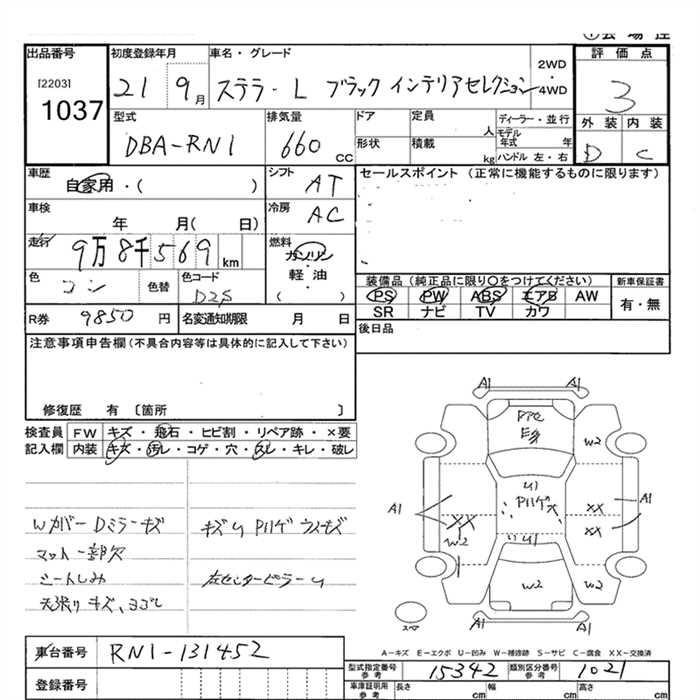 出品番号
[2203]
1037
初度登録年月
21 9月
車名・グレード
ステラ・L ブラックインテリアセレクション
2WD
・
4WD
評価点
3
型式
DBA-RN1
排気量
660 CC
ドア
定員
人
形状
積載
kg
ディーラー・並行
モデル年式 年
ハンドル 左・右
外装 内装
D C
車歴
自家用・( )
シフト
AT
セールスポイント (正常に機能するものに限ります)
車検
年 月( 日)
冷房
AC
走行
9万8千569 km
燃料
ガソリン
軽・油
( ・ )
色
コン
色替
色コード
D2S
装備品 (純正品に限り○をつけてください)
新車保証書
PS PW ABS エアB AW
有・無
SR ナビ TV カワ
R券
9850 円
名変通知期限 月 日
後日品
注意事項申告欄(不具合内容等は具体的に記入して下さい)
修復歴 有 〔箇所 〕
検査員 FW キズ・飛石・ヒビ割・リペア跡・×要
記入欄 内装 キズ・汚レ・コゲ・穴・スレ・キレ・破レ
WカバーDミラーキズ
マット一部欠
シートしみ
天張りキズ、ヨゴレ
キズU Pハゲウスキズ
左センターピラーU
A1 A1
W2
U1
Pハゲ
A1
XX
W2
XX
XX
A1
U1
W2
W2
A1 A1
スペア
A-キズ E-エクボ U-凹み W-補修跡 S-サビ C-腐食 XX-交換済
車台番号
RN1-131452
登録番号
型式指定番号
参考
15342
類別区分番号
参考
1021
車庫証明用
参考
長さ cm 幅 cm 高さ cm